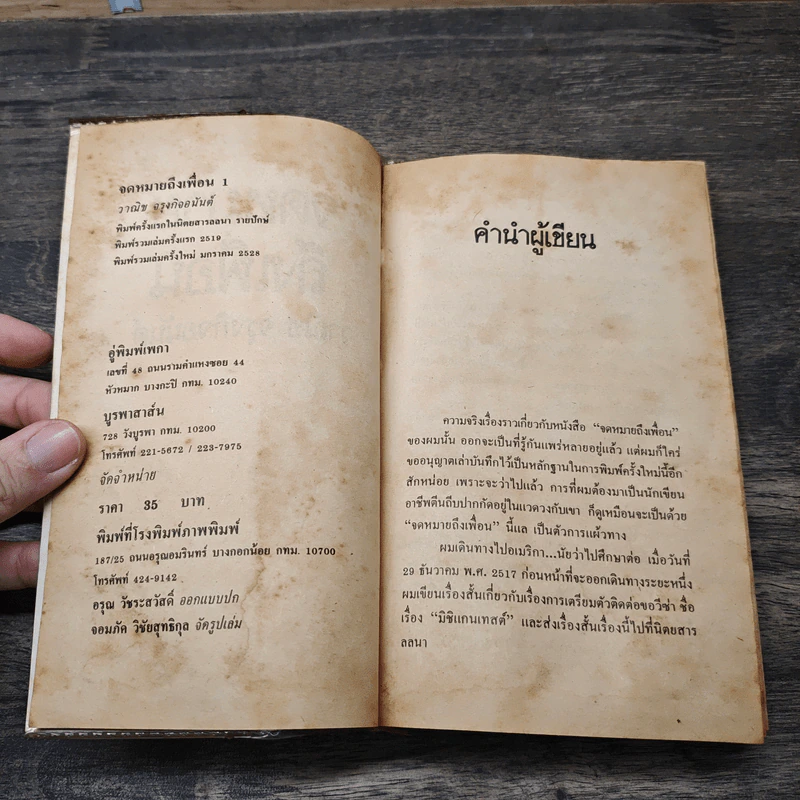 จดหมายถึงเพื่อน 1
วาณิช จรุงกิจอนันต์
พิมพ์ครั้งแรกในนิตยสารลลนา รายปักษ์
พิมพ์รวมเล่มครั้งแรก 2519
พิมพ์รวมเล่มครั้งใหม่ มกราคม 2528
คู่พิมพ์เพกา
เลขที่ 48 ถนนรามคำแหงซอย 44
หัวหมาก บางกะปิ กทม. 10240
บูรพาสาส์น
728 วังบูรพา กทม. 10200
โทรศัพท์ 221-5672 / 223-7975
จัดจำหน่าย
ราคา 35 บาท
พิมพ์ที่โรงพิมพ์ภาพพิมพ์
187/25 ถนนอรุณอมรินทร์ บางกอกน้อย กทม. 10700
โทรศัพท์ 424-9142
อรุณ วัชระสวัสดิ์ ออกแบบปก
จอมภัค วิชัยสุทธิกุล จัดรูปเล่ม
คำนำผู้เขียน
ความจริงเรื่องราวเกี่ยวกับหนังสือ “จดหมายถึงเพื่อน”
ของผมนั้น ออกจะเป็นที่รู้กันแพร่หลายอยู่แล้ว แต่ผมก็ใคร่
ขออนุญาตเล่าบันทึกไว้เป็นหลักฐานในการพิมพ์ครั้งใหม่นี้อีก
สักหน่อย เพราะจะว่าไปแล้ว การที่ผมต้องมาเป็นนักเขียน
อาชีพตีนถีบปากกัดอยู่ในแวดวงกับเขา ก็ดูเหมือนจะเป็นด้วย
“จดหมายถึงเพื่อน” นี้แล เป็นตัวการแผ้วทาง
ผมเดินทางไปอเมริกา...นัยว่าไปศึกษาต่อ เมื่อวันที่
29 ธันวาคม พ.ศ. 2517 ก่อนหน้าที่จะออกเดินทางระยะหนึ่ง
ผมเขียนเรื่องสั้นเกี่ยวกับเรื่องการเตรียมตัวติดต่อขอวีซ่า ชื่อ
เรื่อง “มิชิแกนเทสต์” และส่งเรื่องสั้นเรื่องนี้ไปที่นิตยสาร
ลลนา